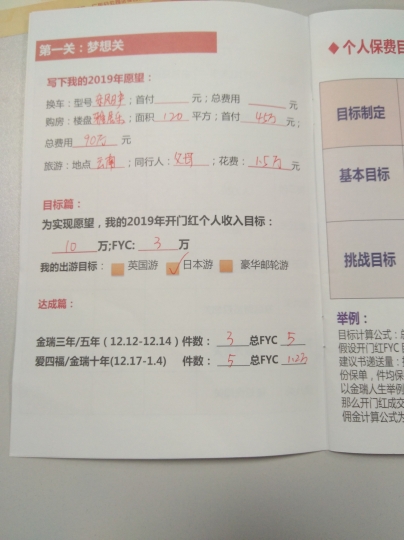 第一关：梦想关
写下我的2019年愿望：
换车：型号；首付 元；总费用 元
购房：楼盘；面积 120 平方；首付 45万 元；
总费用 90万 元
旅游：地点 云南；同行人：父母；花费：1.5万 元
目标篇：
为实现愿望，我的2019年开门红个人收入目标：
10 万;FYC: 3 万
我的出游目标： 英国游 日本游 豪华邮轮游
达成篇：
金瑞三年/五年（12.12-12.14）件数： 3 总FYC 5
爱四福/金瑞十年(12.17-1.4) 件数： 5 总FYC
◆ 个人保费目
目标制定
基本目标
挑战目标
举例：
目标计算公式：总
假设开门红FYC
建议书递送量：
份保单，件均保
以金瑞人生举例
那么开门红成交
佣金计算公式为